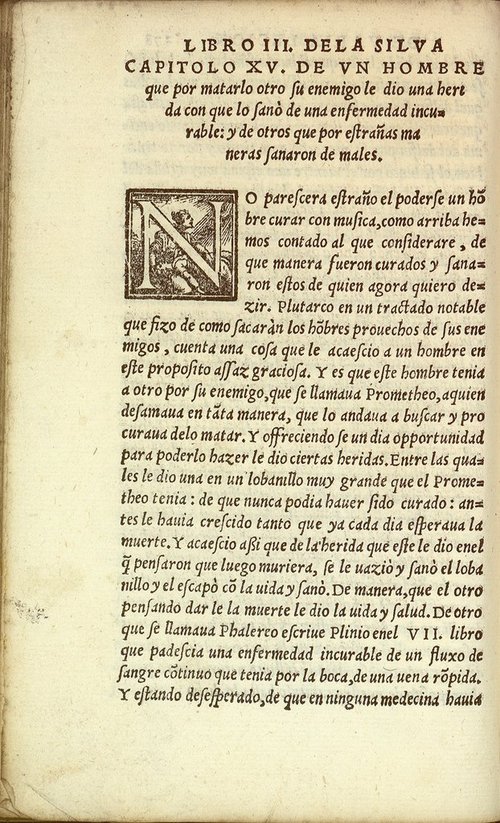 LIBRO III. DELA SILVA
CAPITOLO XV. DE VN HOMBRE
que por matarlo otro su enemigo le dio una heri
da con que lo sanò de una enfermedad incu-
rable: y de otros que por estrañas ma
neras sanaron de males.
NO parescera estraño el poderse un hõ
bre curar con musica, como arriba he-
mos contado al que considerare, de
que manera fueron curados y sana-
ron estos de quien agora quiero de-
zir. Plutarco en un tractado notable
que fizo de como sacaràn los hõbres prouechos de sus ene
migos, cuenta una cosa que le acaescio a un hombre en
este proposito assaz graciosa. Y es que este hombre tenia
a otro por su enemigo, que se llamaua Prometheo, aquien
desamaua en tãta manera, que lo andaua a buscar y pro
curaua delo matar. Y offreciendo se un dia opportunidad
para poderlo hazer le dio ciertas heridas. Entre las qua-
les le dio una en un lobanillo muy grande que el Prome-
theo tenia: de que nunca podia hauer sido curado: an-
tes le hauia crescido tanto que ya cada dia esperaua la
muerte. Y acaescio aßi que de la herida que este le dio enel
q̃ pensaron que luego muriera, se le uaziò y sanò el loba
nillo y el escapò cõ la uida y sanò. De manera, que el otro
pensando dar le la muerte le dio la uida y salud. De otro
que se llamaua Phalereo escriue Plinio enel VII. libro
que padescia una enfermedad incurable de un fluxo de
sangre cõtinuo que tenia por la boca, de una uena rõpida.
Y estando desesperado, de que en ninguna medecina hauia